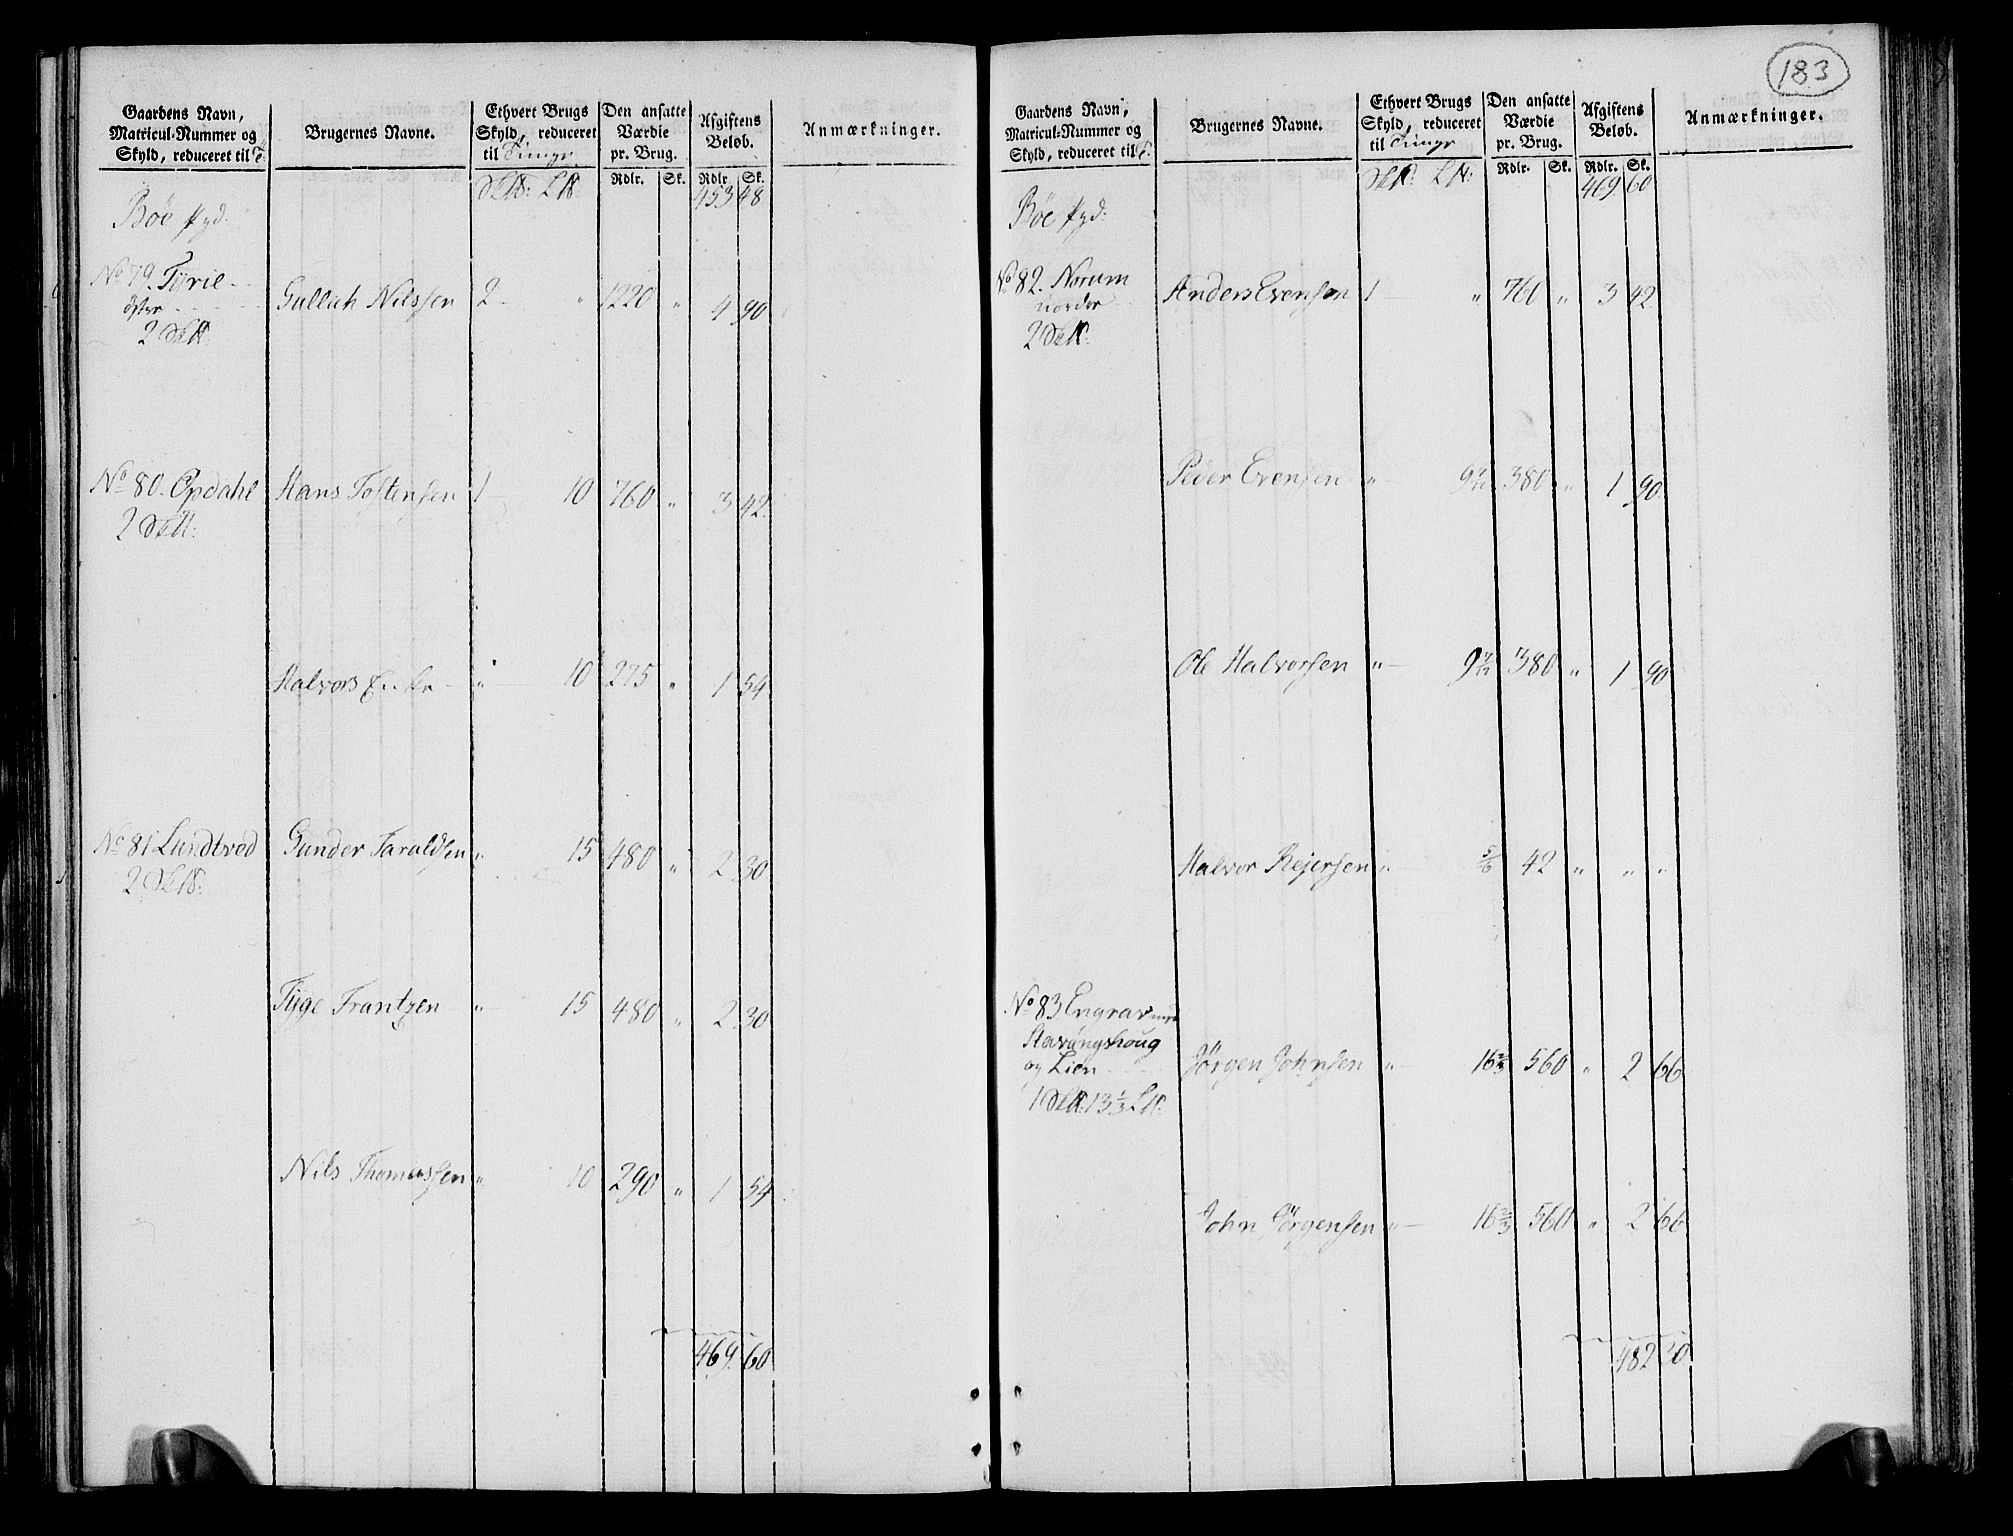 183
Gaardens Navn, Matricul-Nummer og Skyld, reduceret til T.
Brugernes Navne.
Ethvert Brugs Skyld, reduceret til Tunge
Den ansatte Værdie pr. Brug.
Afgiftens Beløb.
Anmærkninger.
Rdlr. Sk. Rdlr. Sk.
Bøe 453 48
No 79. Tyrie
øster Gullich Nilssen 2 " 1220 " 4 90
2
No 80. Opdahl Hans Tostensen 1 10 760 " 3 42
2
Halvors Enke " 10 275 " 1 54
No 81 Lundtved Gunder Taraldsen " 15 480 " 2 30
2
Tyge Frantzen " 15 480 " 2 30
Nils Thomassen " 10 290 " 1 54
469 60
Gaardens Navn, Matricul-Nummer og Skyld, reduceret til T.
Brugernes Navne.
Ethvert Brugs Skyld, reduceret til Tunge
Den ansatte Værdie pr. Brug.
Afgiftens Beløb.
Anmærkninger.
Rdlr. Sk. Rdlr. Sk.
Bøe 469 60
No 82. Norum Anders Evensen 1 " 760 " 3 42
nordre
2
Peder Evensen " 9 7/12 380 " 1 90
Ole Halvorsen " 9 7/12 380 " 1 90
Halvor Rejersen " 5/6 42 " " "
No 83 Engrav
Stavungshoug
og Lien Jörgen Johnsen " 16 2/3 560 " 2 66
1 13 1/3
John Jörgensen " 16 2/3 560 " 2 66
482 30